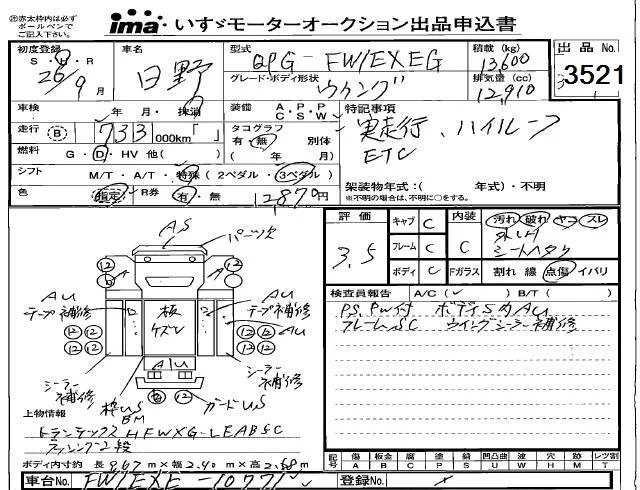 ㊟赤太枠内は必ず
ボールペンで
ご記入ください。
ima・いすゞモーターオークション出品申込書
初度登録 車名 型式 QPG-FW1EXEG 積載 (kg) 13600 出品No.
S・H・R 26年9月 日野 グレード・ボディ形状 ウイング 排気量 (cc) 12,910 3521
車検 年 月・抹消 装備 A・P・P C・S・W 特記事項
走行 B 733 000km「 」 タコグラフ 有・無 別体 実走行、ハイルーフ
燃料 G・D・HV 他( ) ( 年 月) ETC
シフト M/T・A/T・特殊 (2ペダル・3ペダル) 架装物年式:( 年式)・不明
色 指定 R券 有・無 12870円 ※不明の場合は、不明に○をする。
評価 キャブ C 内装 汚れ 破れ ヤコ スレ
3.5 フレーム C C シートヘタリ
ボディ C Fガラス 割れ 線 点傷 イバリ
検査員報告 A/C (✓) B/T ( )
PS.PW付 ボディS内AU
フレームSC ウイングシーラー補修
AS パーツ欠
AU テープ補修 板 ケズレ AU テープ補修
AU
⑫ ⑫ ⑫ ⑫
シーラー補修 AU シーラー補修
枠US BM ガードUS
上物情報
トランテックスHFWXG-LEABSC
ラッシング2段
ボディ内寸約 長 9.67m×幅 2.40m×高 2.58m
記号 傷 A 凹 B 腐 C 塗 P 錆 S 凹凸曲 U 波 W 穴 H 跡 M レツ割 T
車台No. FW1EXE-10771 登録No.